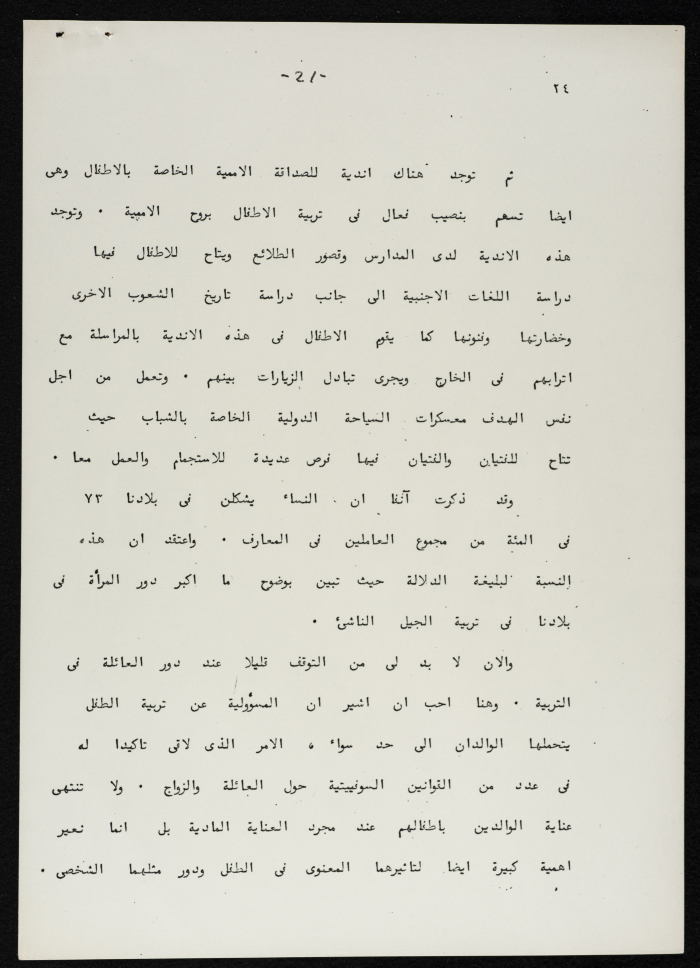 -21-
٢٤
ثم توجد هناك اندية للصداقة الاممية الخاصة بالاطفال وهى
ايضا تسهم بنصيب فعال فى تربية الاطفال بروح الاممية . وتوجد
هذه الاندية لدى المدارس وقصور الطلائع ويتاح للاطفال فيها
دراسة اللغات الاجنبية الى جانب دراسة تاريخ الشعوب الاخرى
وخضارتها وفنونها كما يقوم الاطفال فى هذه الاندية بالمراسلة مع
اترابهم فى الخارج ويجرى تبادل الزيارات بينهم . وتعمل من اجل
نفس الهدف معسكرات السياحة الدولية الخاصة بالشباب حيث
تتاح للفتيان والفتيان فيها فرص عديدة للاستجمام والعمل معا .
وقد ذكرت آنفا ان النساء يشكلن فى بلادنا ٧٣
فى المئة من مجموع العاملين فى المعارف . واعتقد ان هذه
النسبة لبليغة الدلالة حيث تبين بوضوح ما اكبر دور المرأة فى
بلادنا فى تربية الجيل الناشئ .
والان لا بد لى من التوقف قليلا عند دور العائلة فى
التربية . وهنا احب ان اشير ان المسؤولية عن تربية الطفل
يتحملها الوالدان الى حد سواء ، الامر الذى لاقى تاكيدا له
فى عدد من القوانين السوفييتية حول العائلة والزواج . ولا تنتهى
عناية الوالدين باطفالهم عند مجرد العناية المادية بل انما نعير
اهمية كبيرة ايضا لتاثيرهما المعنوى فى الطفل ودور مثلهما الشخصى .